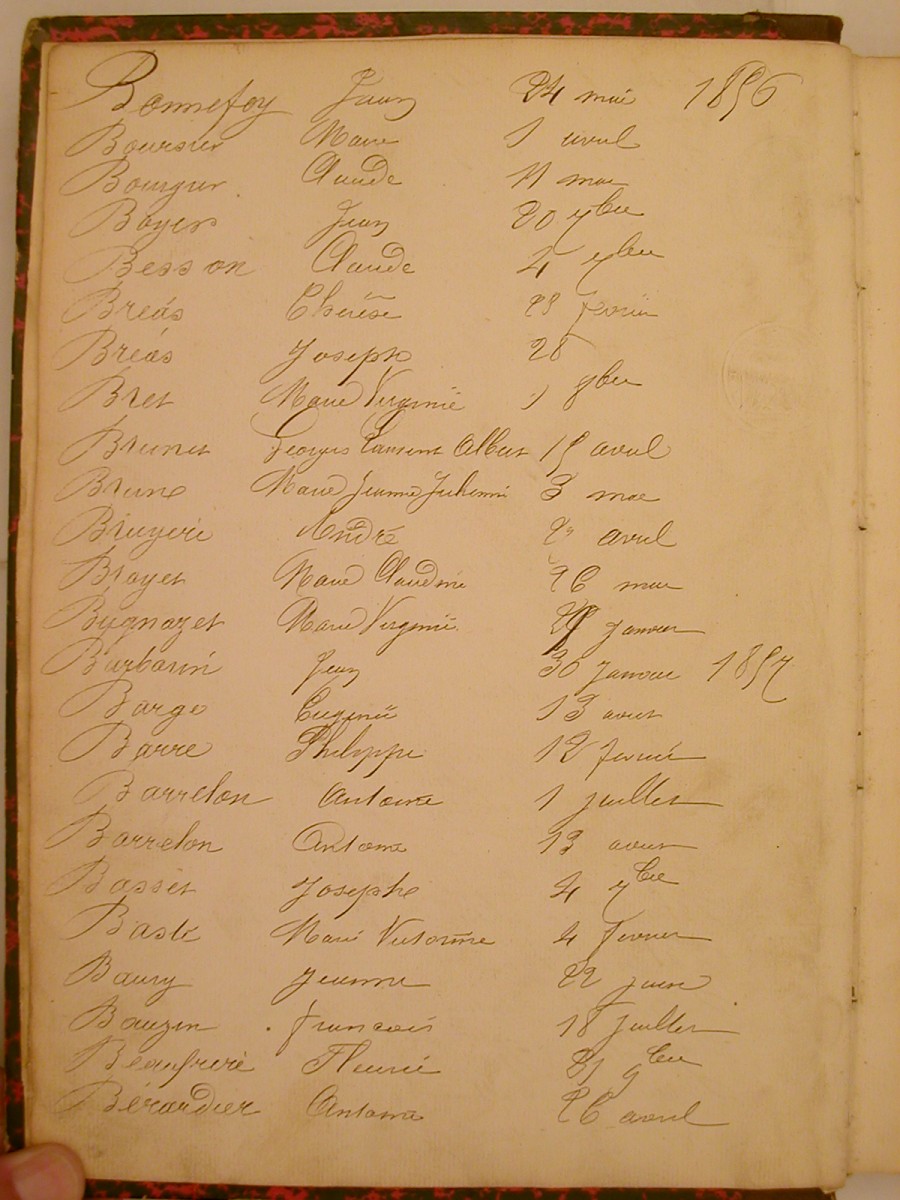 Bonnefoy Jean 24 mai 1856
Boursier Marie 1 avril
Bourgier Claude 11 mai
Boyer Jean 20 7bre
Besson Claude 4 7bre
Bréas Thérèse 28 février
Bréas Joseph 28
Bret Marie Virginie 1 8bre
Brunet Georges Laurent Albert 15 avril
Brune Marie Jeanne 3 mai
Bruyère André avril
Broyet Marie Claudine 26 mai
Bygnozet Marie Virginie janvier
Barbarin Jean 30 janvier 1857
Barge Eugénie 13 aout
Barre Philippe 12 février
Barrelon Antoine 1 juillet
Barrelon Antoine 13 aout
Basset Josephe 4 7bre
Baste Marie Victorine 4 février
Baury Jeanne 22 juin
Bauzin francois 18 juillet
Beaufrere Fleurie 9bre
Bérardier Antoine 26 avril